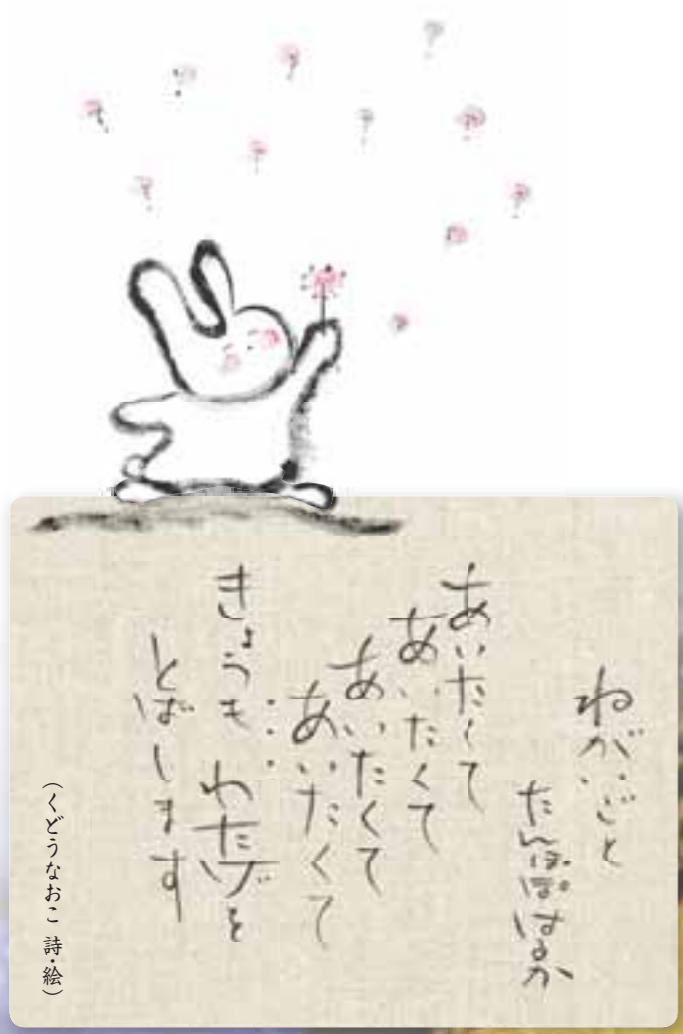 ねがいごと
たんぽぽはるか
あいたくて
あいたくて
あいたくて
あいたくて
・・・
きょうも わたげを
とばします
(くどうなおこ 詩・絵)